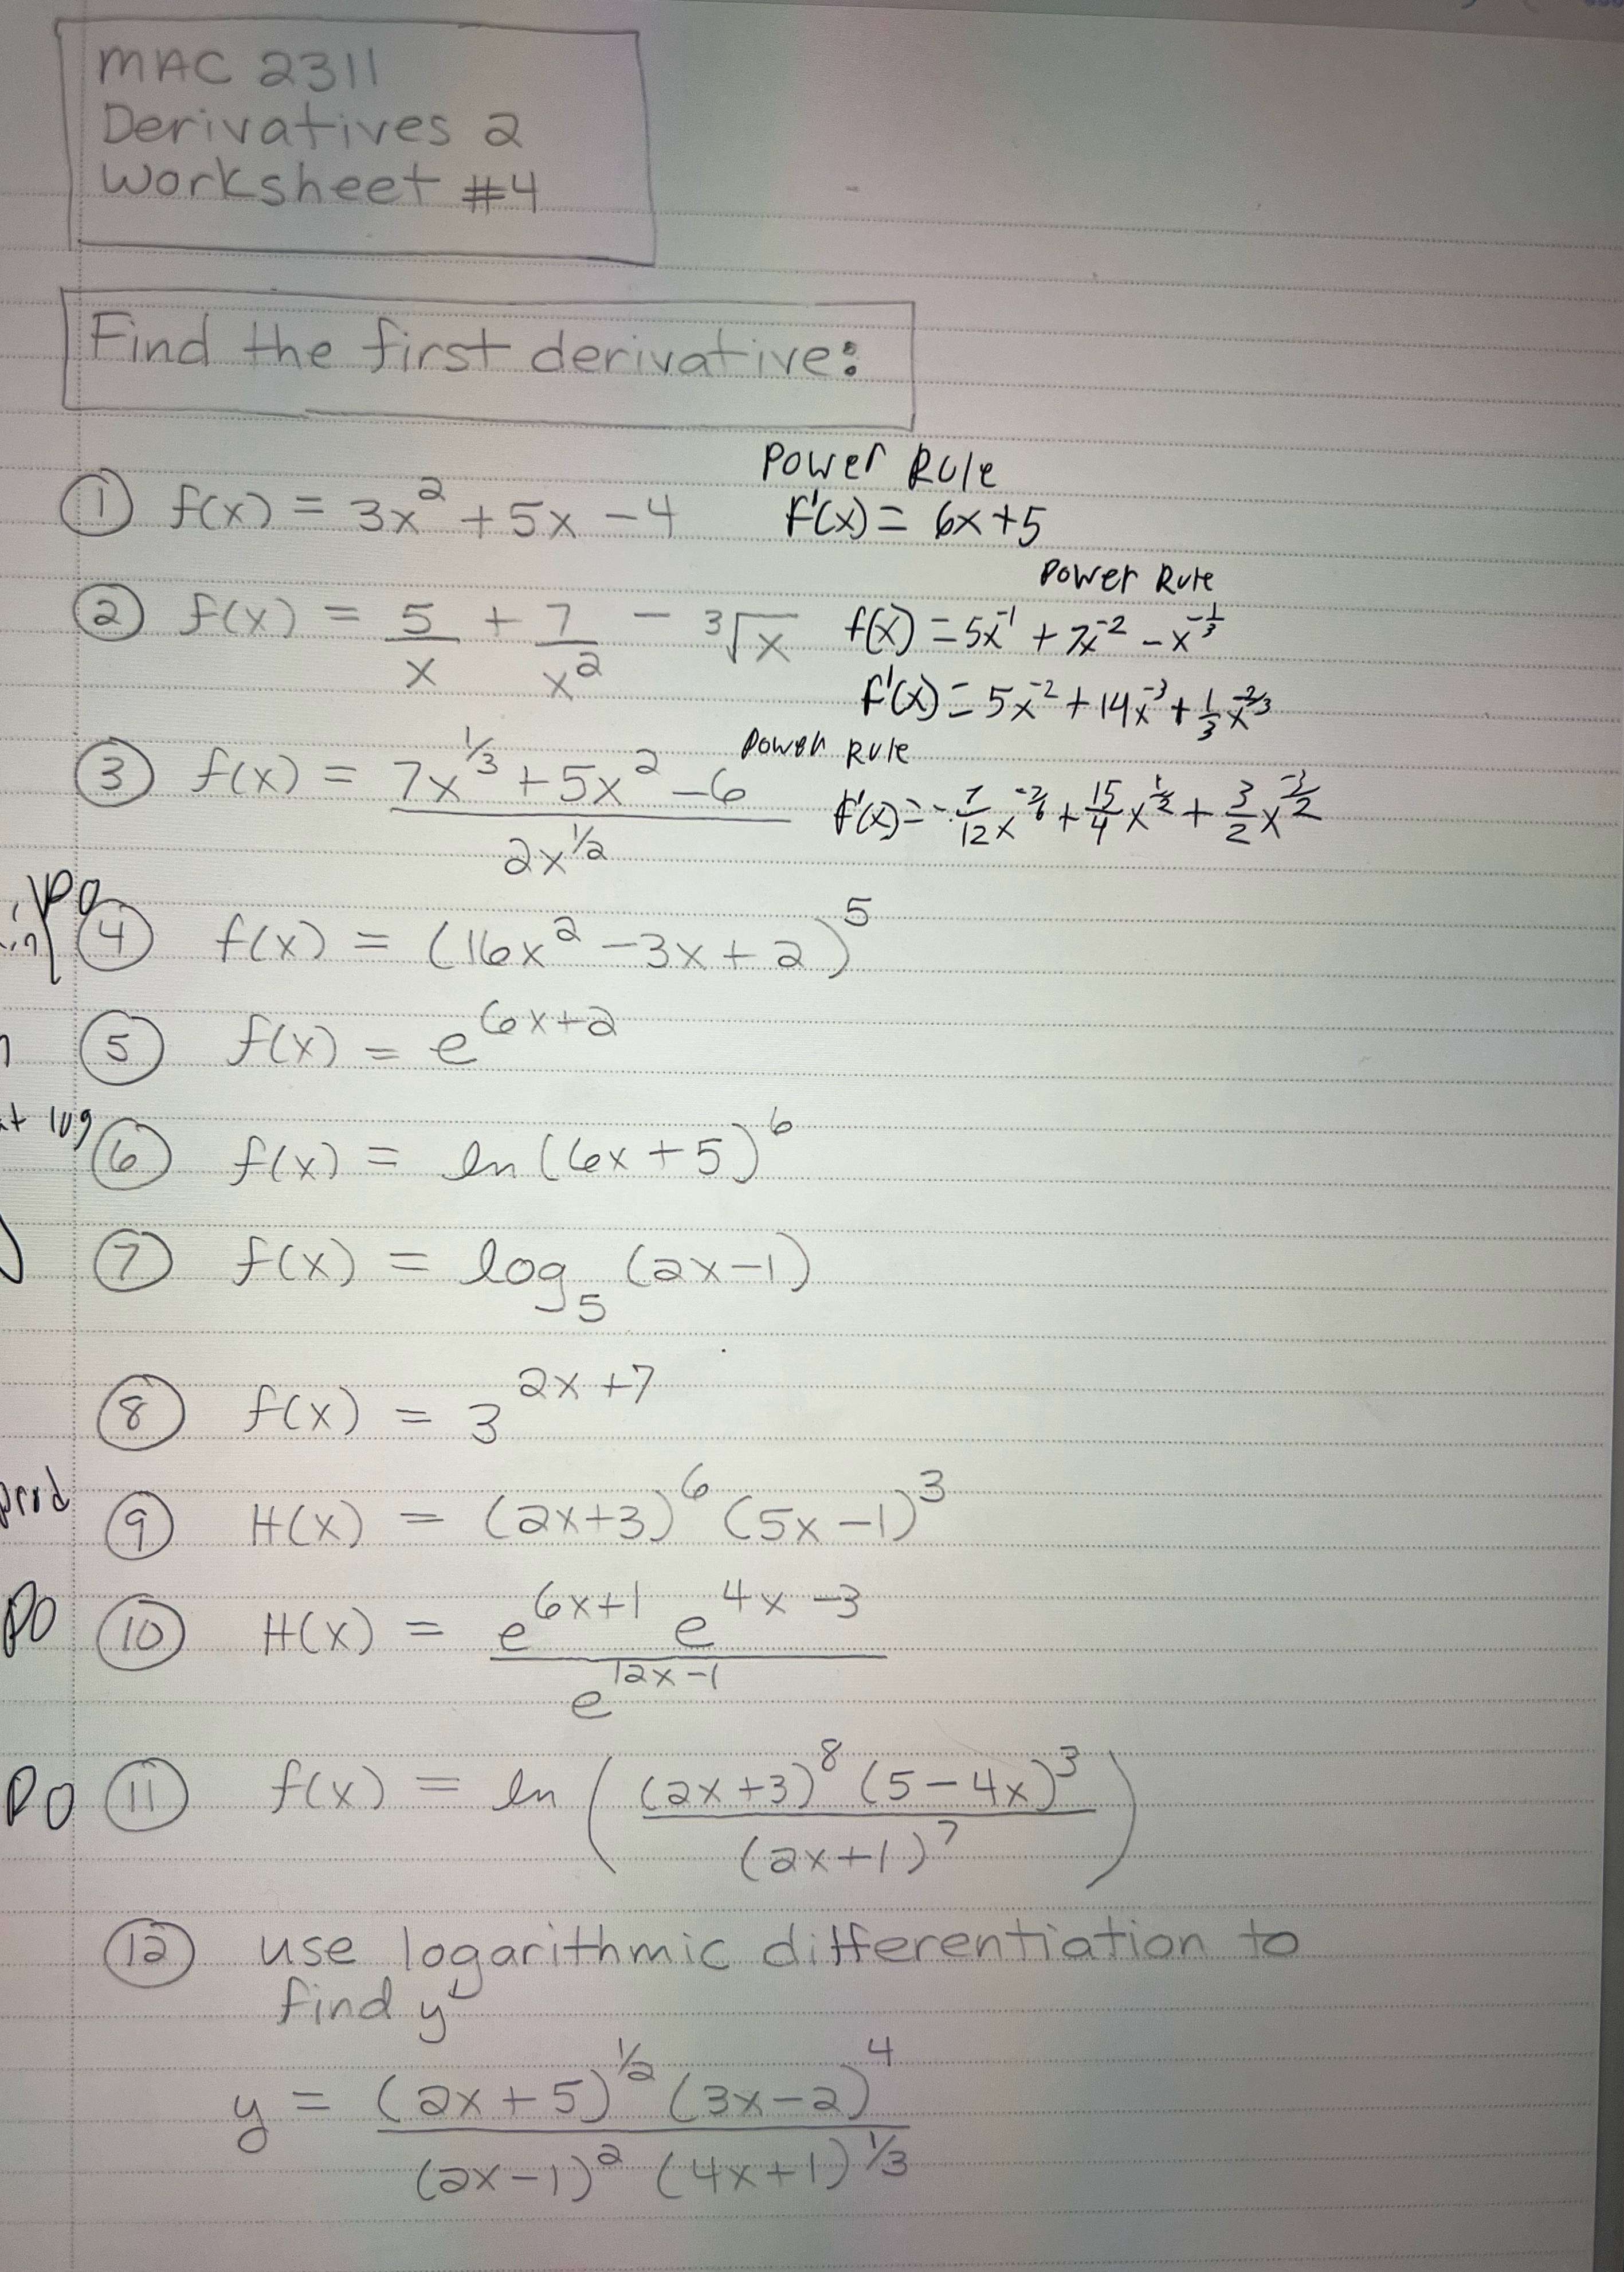 MAC 2311
Derivatives 2
Worksheet #4
Find the first derivative:
① f(x) = 3x² + 5x − 4 Power Rule f'(x) = 6x + 5
② f(x) = 5/x + 7/x² − ³√x Power Rule f(x) = 5x⁻¹ + 7x⁻² − x^(-1/3)
f'(x) = 5x⁻² + 14x⁻³ + 1/3 x^(-2/3)
③ f(x) = (7x^(1/3) + 5x² − 6)/(2x^(1/2)) Power Rule f'(x) = -7/12 x^(-7/6) + 15/4 x^(1/2) + 3/2 x^(-3/2)
④ f(x) = (16x² − 3x + 2)⁵
⑤ f(x) = e^(6x+2)
log
⑥ f(x) = ln(6x + 5)⁶
⑦ f(x) = log₅ (2x − 1)
⑧ f(x) = 3^(2x+7)
prod
⑨ H(x) = (2x+3)⁶ (5x−1)³
PO ⑩ H(x) = (e^(6x+1) e^(4x−3))/(e^(12x−1))
PO ⑪ f(x) = ln( ((2x+3)⁸ (5−4x)³)/((2x+1)⁷) )
⑫ use logarithmic differentiation to
find y'
y = ((2x+5)^(1/2) (3x−2)⁴)/((2x−1)² (4x+1)^(1/3))